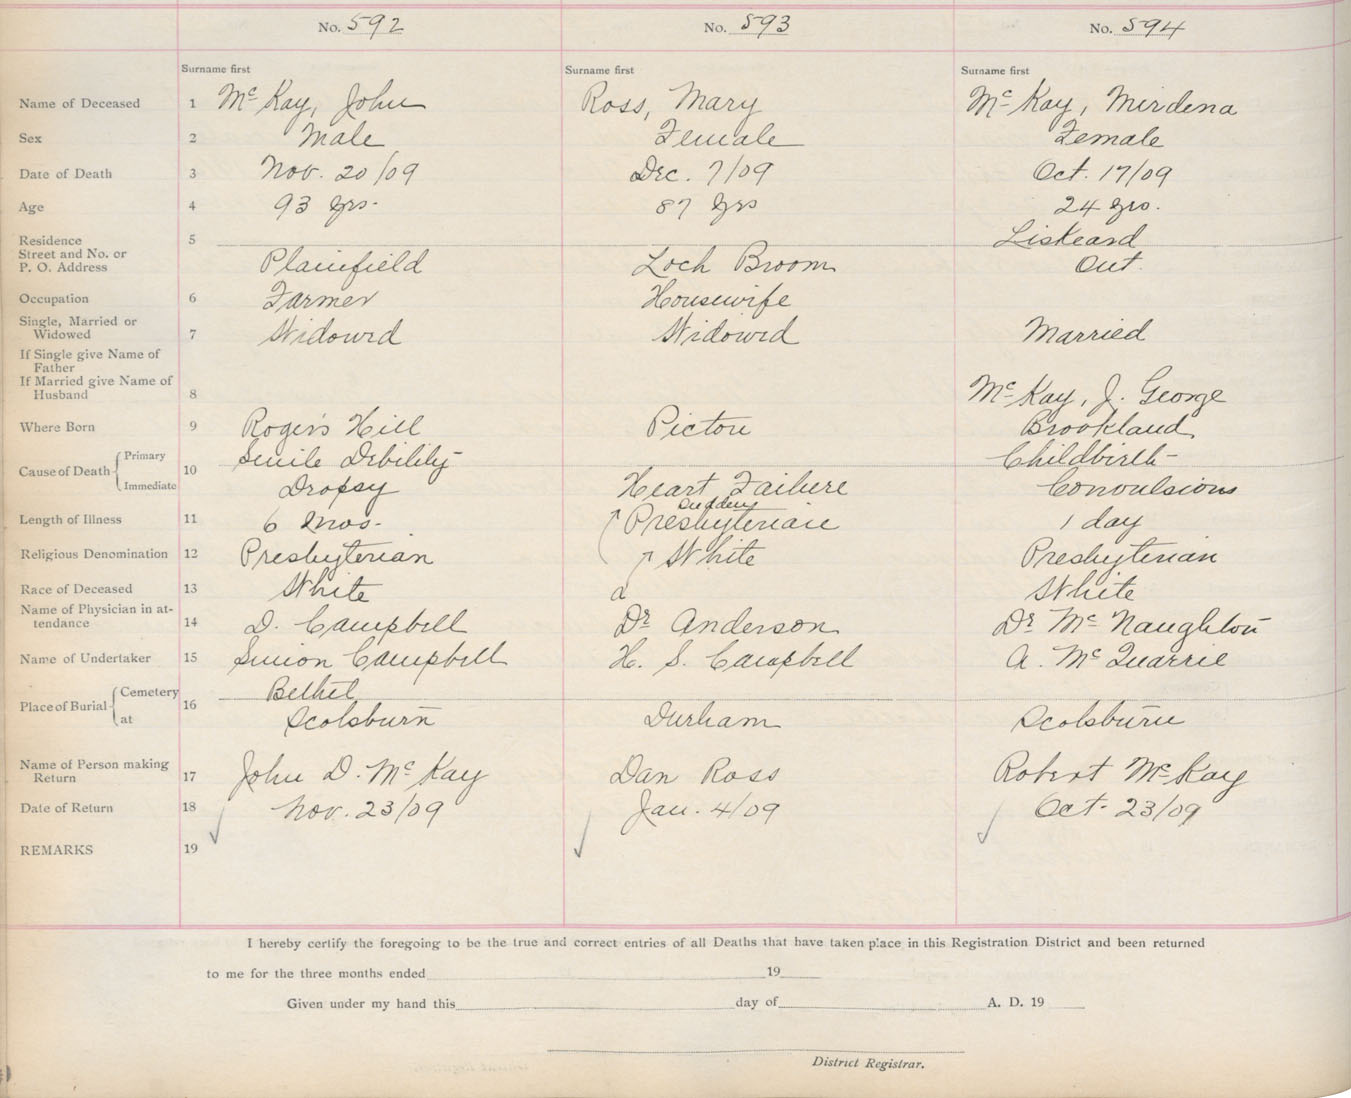 No. 592 No. 593 No. 594
Surname first Surname first Surname first
Name of Deceased 1 McKay, John Ross, Mary McKay, Mirdena
Sex 2 Male Female Female
Date of Death 3 Nov. 20/09 Dec. 7/09 Oct. 17/09
Age 4 93 yrs. 87 yrs 24 yrs.
Residence 5 Liskeard
Street and No. or
P. O. Address Plainfield Loch Broom Ont.
Occupation 6 Farmer Housewife
Single, Married or
Widowed 7 Widowed Widowed Married
If Single give Name of
Father
If Married give Name of
Husband 8 McKay, J. George
Where Born 9 Roger's Hill Pictou Brookland
Cause of Death Primary 10 Senile Debility Childbirth
Immediate Dropsy Heart Failure Convulsions
Sudden
Length of Illness 11 6 mos. Presbyterian 1 day
Religious Denomination 12 Presbyterian White Presbyterian
Race of Deceased 13 White White
Name of Physician in at-
tendance 14 D. Campbell Dr Anderson Dr McNaughton
Name of Undertaker 15 Simon Campbell H. S. Campbell A. McQuarrie
Place of Burial Cemetery 16 Bethel
at Scotsburn Durham Scotsburn
Name of Person making
Return 17 John D. McKay Dan Ross Robert McKay
Date of Return 18 Nov. 23/09 Jan. 4/09 Oct. 23/09
REMARKS 19
I hereby certify the foregoing to be the true and correct entries of all Deaths that have taken place in this Registration District and been returned
to me for the three months ended 19
Given under my hand this day of A. D. 19
District Registrar.